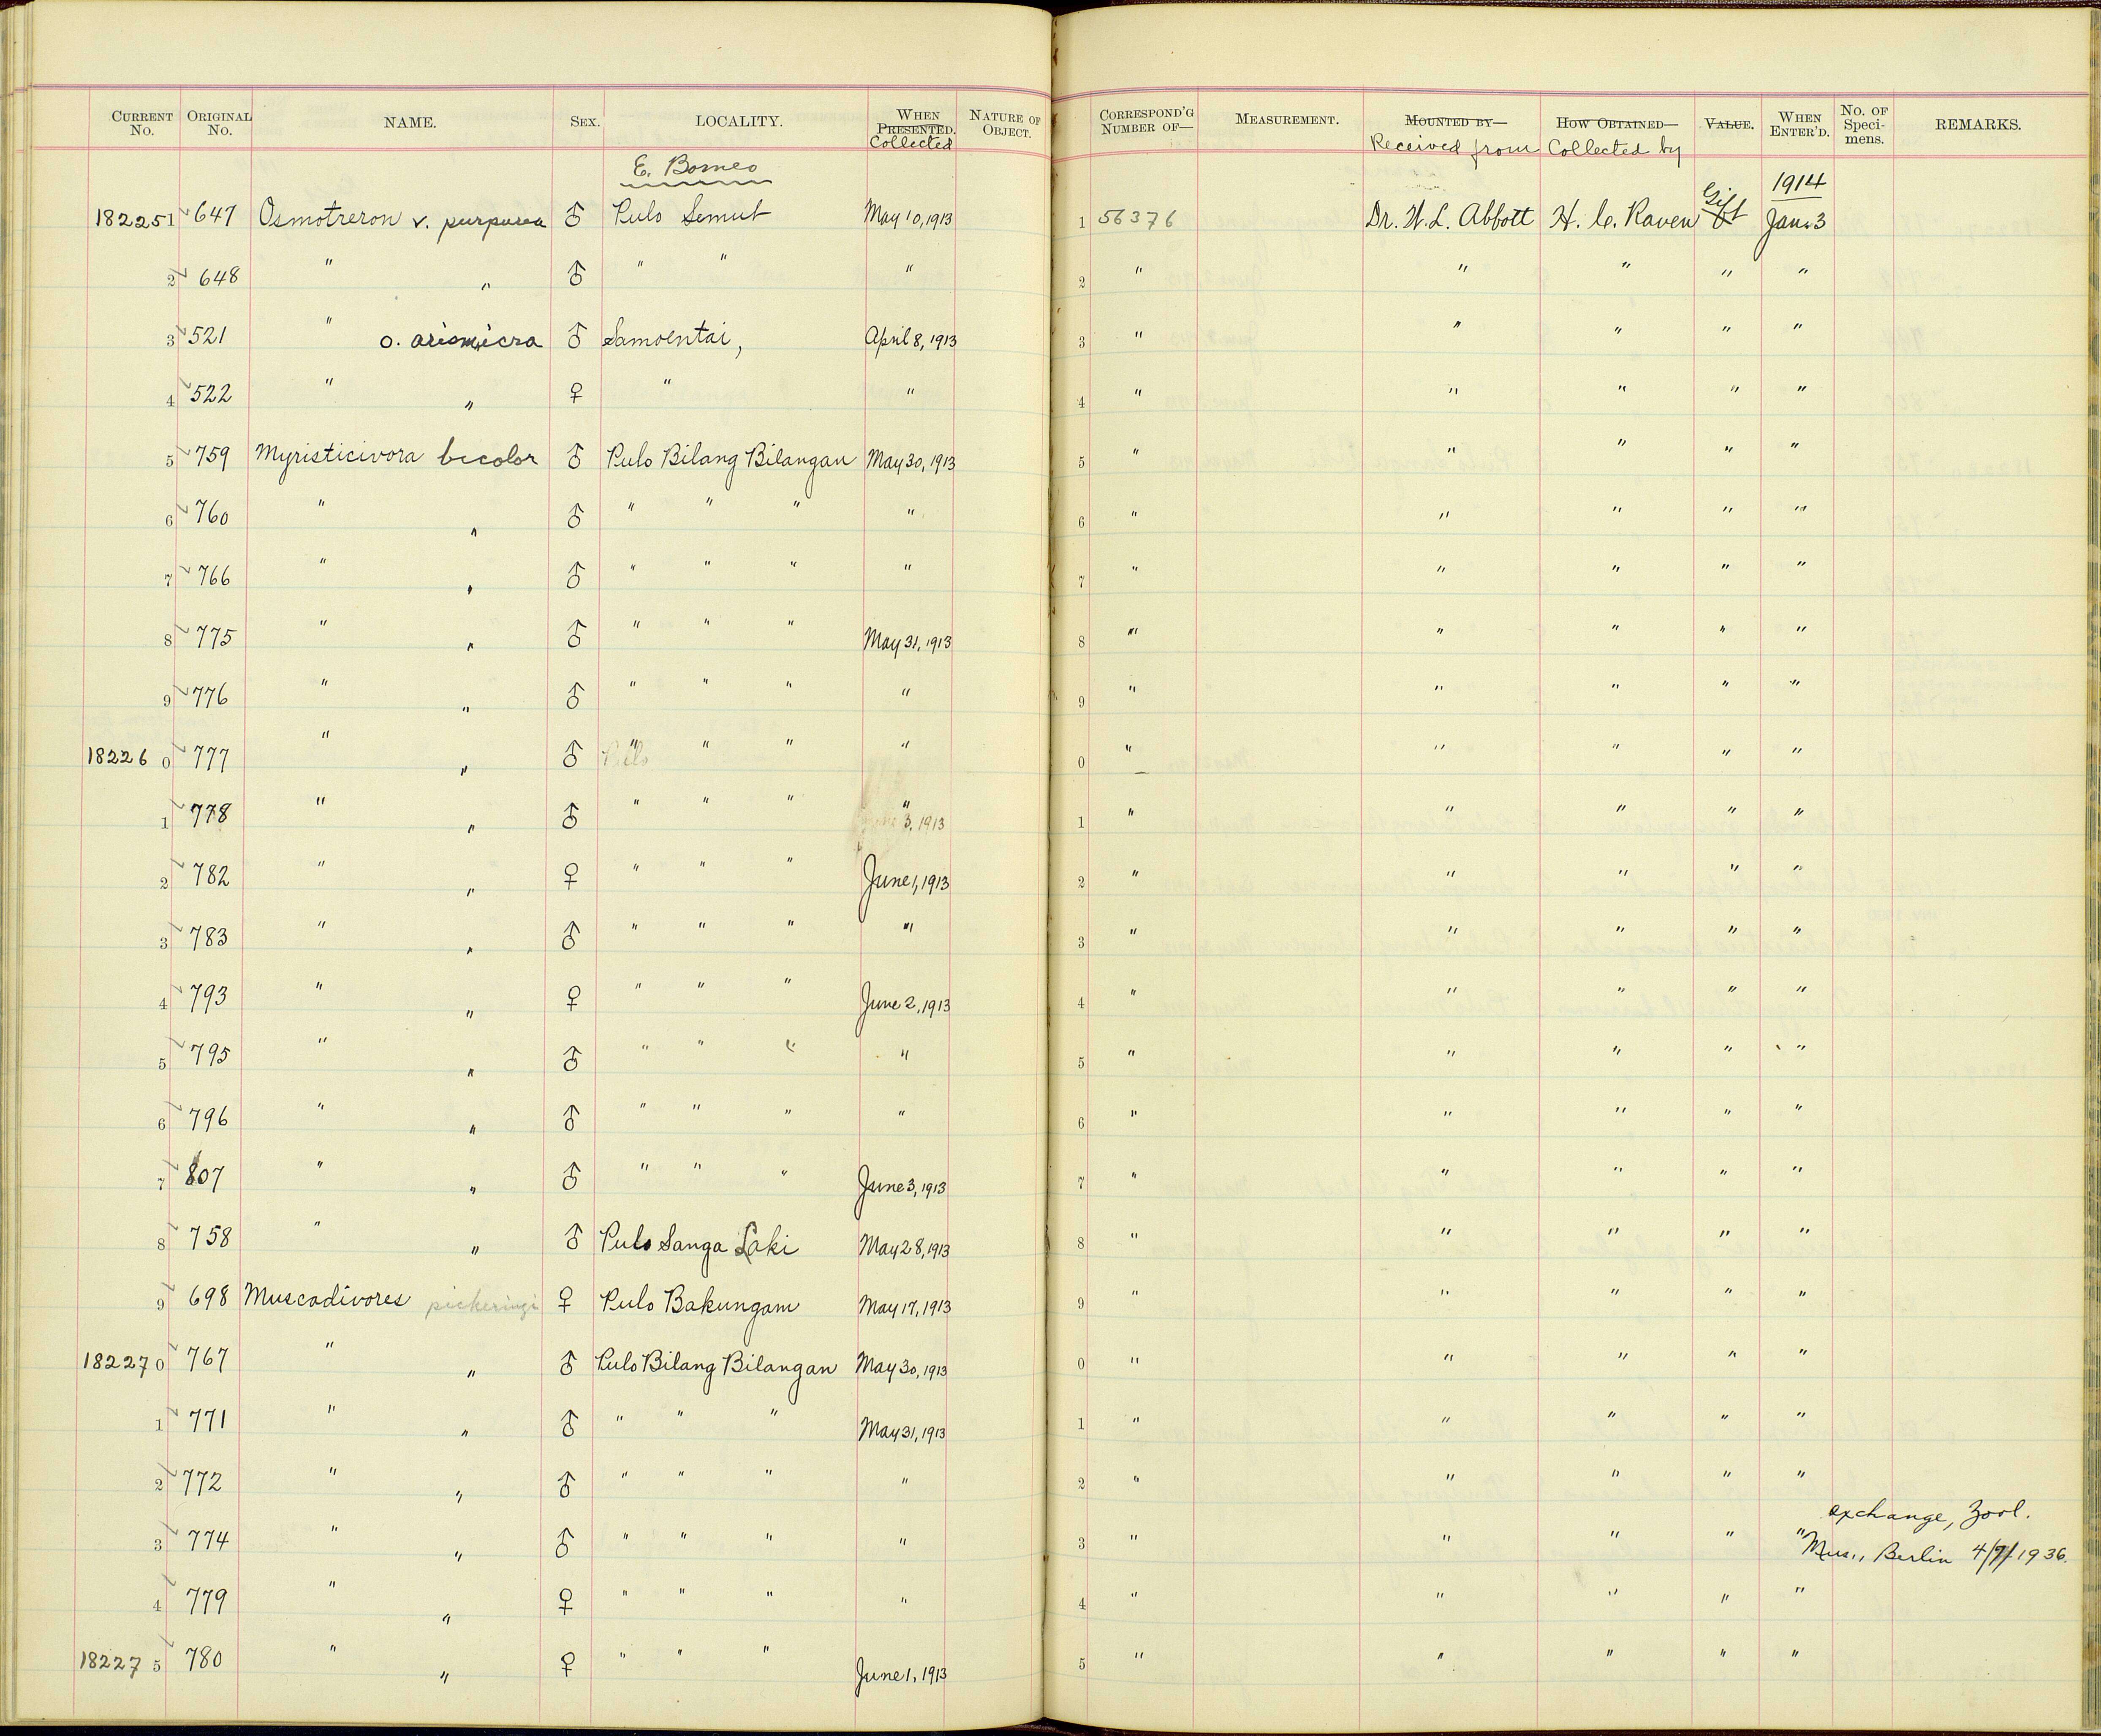 CURRENT No. ORIGINAL No. NAME. SEX. LOCALITY. WHEN PRESENTED. Collected NATURE OF OBJECT. CORRESPOND'G NUMBER OF— MEASUREMENT. MOUNTED BY— Received from HOW OBTAINED— Collected by VALUE. WHEN ENTER'D. No. OF Speci-mens. REMARKS.
E. Borneo 1914
182251 647 Osmotreron v. purpurea ♂ Pulo Semut May 10, 1913 1 56376 Dr. W. L. Abbott H. C. Raven Gift Jan. 3
2 648 " " ♂ " " " 2 " " " " "
3 521 " o. ♂ Samoentai, April 8, 1913 3 " " " " "
4 522 " " ♀ " " 4 " " " " "
5 759 Myristicivora bicolor ♂ Pulo Bilang Bilangan May 30, 1913 5 " " " " "
6 760 " " ♂ " " " " 6 " " " " "
7 766 " " ♂ " " " " 7 " " " " "
8 775 " " ♂ " " " May 31, 1913 8 " " " " "
9 776 " " ♂ " " " " 9 " " " " "
18226 0 777 " " ♂ " " " " 0 " " " " "
1 778 " " ♂ " " " " 3, 1913 1 " " " " "
2 782 " " ♀ " " " June 1, 1913 2 " " " " "
3 783 " " ♂ " " " " 3 " " " " "
4 793 " " ♀ " " " June 2, 1913 4 " " " " "
5 795 " " ♂ " " " " 5 " " " " "
6 796 " " ♂ " " " " 6 " " " " "
7 807 " " ♂ " " " June 3, 1913 7 " " " " "
8 758 " " ♂ Pulo Sanga Laki May 28, 1913 8 " " " " "
9 698 Muscadivores pickeringi ♀ Pulo Bakungam May 17, 1913 9 " " " " "
18227 0 767 " " ♂ Pulo Bilang Bilangan May 30, 1913 0 " " " " "
1 771 " " ♂ " " " May 31, 1913 1 " " " " "
2 772 " " ♂ " " " " 2 " " " " "
exchange, Zool.
3 774 " " ♂ " " " " 3 " " " " " Mus., Berlin 4/9/1936.
4 779 " " ♀ " " " " 4 " " " " "
18227 5 780 " " ♀ " " " June 1, 1913 5 " " " " "